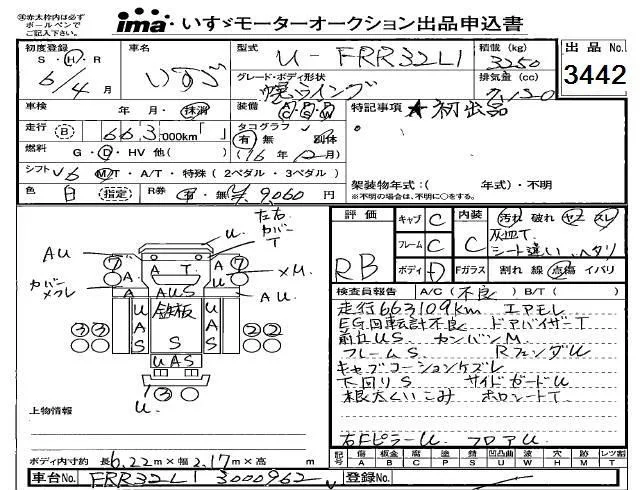 ㊟赤太枠内は必ず
ボールペンで
ご記入下さい。
ima いすゞモーターオークション出品申込書
初度登録 S・H・R 6/4 月
車名 いすゞ
型式 U-FRR32L1
積載 (kg) 3250
出品 No. 3442
グレード・ボディ形状 幌ウイング
排気量 (cc) 7,120
車検 年 月・抹消
装備
特記事項 ★初出品
走行 B 663,000km「 」
タコグラフ 有 無 別体
燃料 G・D・HV 他( )
(16 年 2 月)
シフト 6 M/T・A/T・特殊 (2ペダル・3ペダル)
架装物年式:( 年式)・不明
※不明の場合は、不明に○をする。
色 白 指定 R券 有・無 ¥9,060 円
評価 RB
キャブ C
フレーム C
ボディ D
内装 C
汚れ 破れ ヤブ スレ
灰皿T
シート違い ヘタリ
Fガラス 割れ 線 点傷 イバリ
検査員報告 A/C (不良) B/T ( )
走行663109km エアモレ
EG回転計不良 ドアバイザーT
前立US カンバンM
フレームS RフェンダU
キャブコーションケズレ
下回りS サイドガードU
根太くいこみ ホロシートT
右FピラーU フロアU
左右
カバー
T
U
AU
カバー
メクレ
⑦ A T ⑦
A A A
×M
AUS
AU
U 鉄板 U
A A
S S S
③③ ②②
UAS
U
上物情報
ボディ内寸約 長6.22m×幅2.17m×高 m
記号 傷 板金 腐 塗 錆 凹凸曲 波 穴 跡 レツ割
A B C P S U W H M T
車台No. FRR32L1 3000962
登録No.